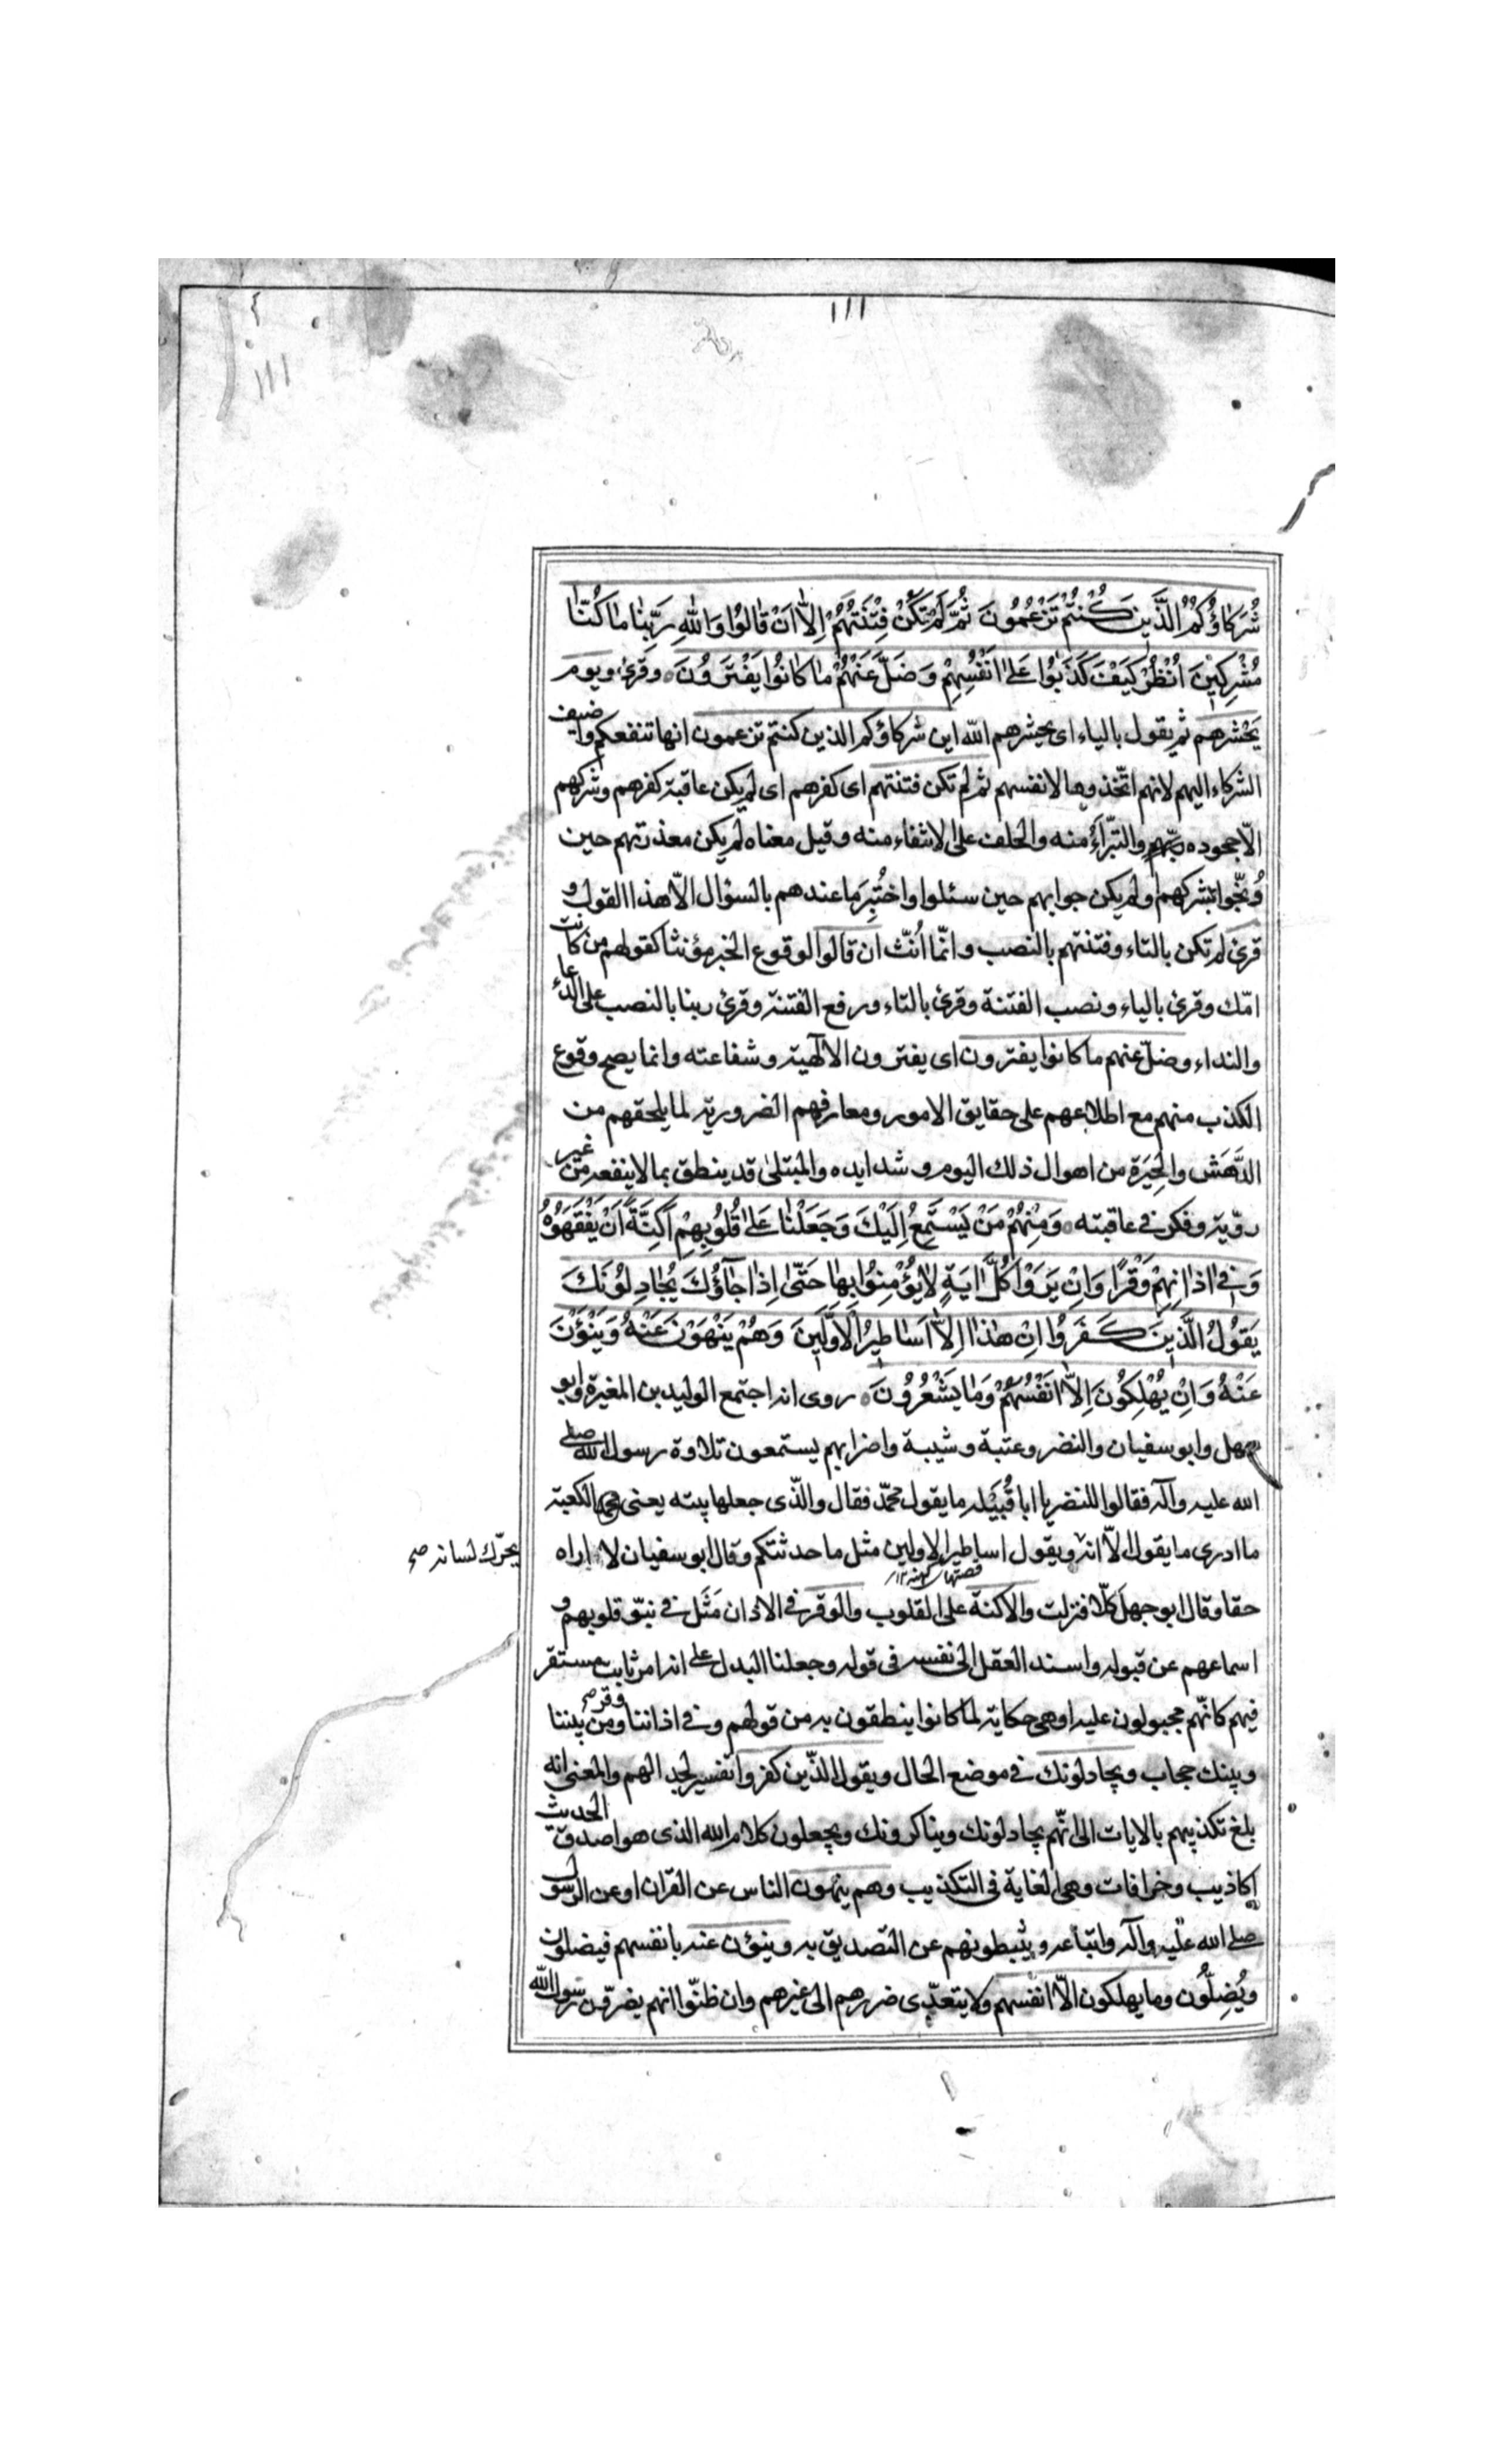 ١١١
١١١
شُرَكَاؤُكُمُ الَّذِينَ كُنْتُمْ تَزْعُمُونَ ثُمَّ لَمْ تَكُنْ فِتْنَتُهُمْ إِلَّا أَنْ قَالُوا وَاللَّهِ رَبِّنَا مَا كُنَّا
مُشْرِكِينَ اُنْظُرْ كَيْفَ كَذَبُوا عَلَى أَنْفُسِهِمْ وَضَلَّ عَنْهُمْ مَا كَانُوا يَفْتَرُونَ وقرئ ويوم
يَحْشرهم ثم يقول بالياء اى يحشرهم الله اين شركاؤكم الذين كنتم تزعمون انها تنفعكم واضيف
الشركاء اليهم لانهم اتّخذوها لانفسهم ثم لم تكن فتنتهم اى كفرهم اى لم يكن عاقبة كفرهم وشركهم
الّا جحوده والتبّرأ منه والحلف على الانتفاء منه وقيل معناه لم يكن معذرتهم حين
وُبّخوا بشركهم ولم يكن جوابهم حين سئلوا واختُبِرَ ما عندهم بالسؤال الّا هذا القول و
قرئ لم تكن بالتاء وفتنتهم بالنصب وانّما اُنّث ان قالوا لوقوع الخبر مؤنثا كقولهم من كانت
امّك وقرئ بالياء ونصب الفتنة وقرئ بالتاء ورفع الفتنة وقرئ ربنا بالنصب على الدعاء
والنداء وضلّ عنهم ما كانوا يفترون اى يفترون الالهية وشفاعته وانما يصح وقوع
الكذب منهم مع اطلاعهم على حقايق الامور ومعارفهم الضرورية لما يلحقهم من
الدَّهَش والحِيَرة من اهوال ذلك اليوم وشدايده والمبتلى قد ينطق بما لا ينفعه من غير
رويّة وفكر فى عاقبته وَمِنْهُمْ مَنْ يَسْتَمِعُ إِلَيْكَ وَجَعَلْنَا عَلَى قُلُوبِهِمْ أَكِنَّةً أَنْ يَفْقَهُوهُ
وَفِى اذَانِهِمْ وَقْرًا وَإِنْ يَرَوْا كُلَّ ايَةٍ لَا يُؤْمِنُوا بِهَا حَتَّى إِذَا جَآؤُكَ يُجَادِلُونَكَ
يَقُولُ الَّذِينَ كَفَرُوا إِنْ هَذَا إِلَّا أَسَاطِيرُ الْأَوَّلِينَ وَهُمْ يَنْهَوْنَ عَنْهُ وَيَنْؤَنَ
عَنْهُ وَإِنْ يُهْلِكُونَ إِلَّا أَنْفُسَهُمْ وَمَا يَشْعُرُونَ روى انه اجتمع الوليد بن المغيرة وابو
جهل وابو سفيان والنضر وعتبة وشيبة واضرابهم يستمعون تلاوة رسول الله صلى
الله عليه وآله فقالوا للنضر يا ابا قُتَيله ما يقول محمّد فقال والّذى جعلها بيته يعنى الكعبة
ما ادرى ما يقول الّا انه ويقول اساطير الاولين مثل ما حدثتكم وقال ابو سفيان لا اراه
يحرّك لسانه صح
حقا وقال ابو جهل كلّا فنزلت والاكنة على القلوب والوقر فى الاذان مَثَل فى نبوّ قلوبهم و
اسماعهم عن قبوله واسند العقل الى نفسه فى قوله وجعلنا البدل على انه امر ثابت مستقر
فيهم كانّهم مجبولون عليه او هى حكاية لما كانوا ينطقون به من قولهم وفى اذاننا وقر ومن بيننا
وبينك حجاب ويجادلونك فى موضع الحال ويقول الّذين كفروا تفسير لجدالهم والمعنى انه
بلغ تكذيبهم بالايات الى انّهم يجادلونك ويناكرونك ويجعلون كلام الله الذى هو اصدق الحديث
اكاذيب وخرافات وهى الغاية فى التكذيب وهم ينهون الناس عن القران او عن الرسول
صلى الله عليه وآله واتباعه ويثبطونهم عن التصديق به وينؤن عنه بانفسهم فيضلون
ويُضِلُّون وما يهلكون الّا انفسهم ولا يتعدّى ضررهم الى غيرهم وان ظنّوا انهم يضرّون رسول الله